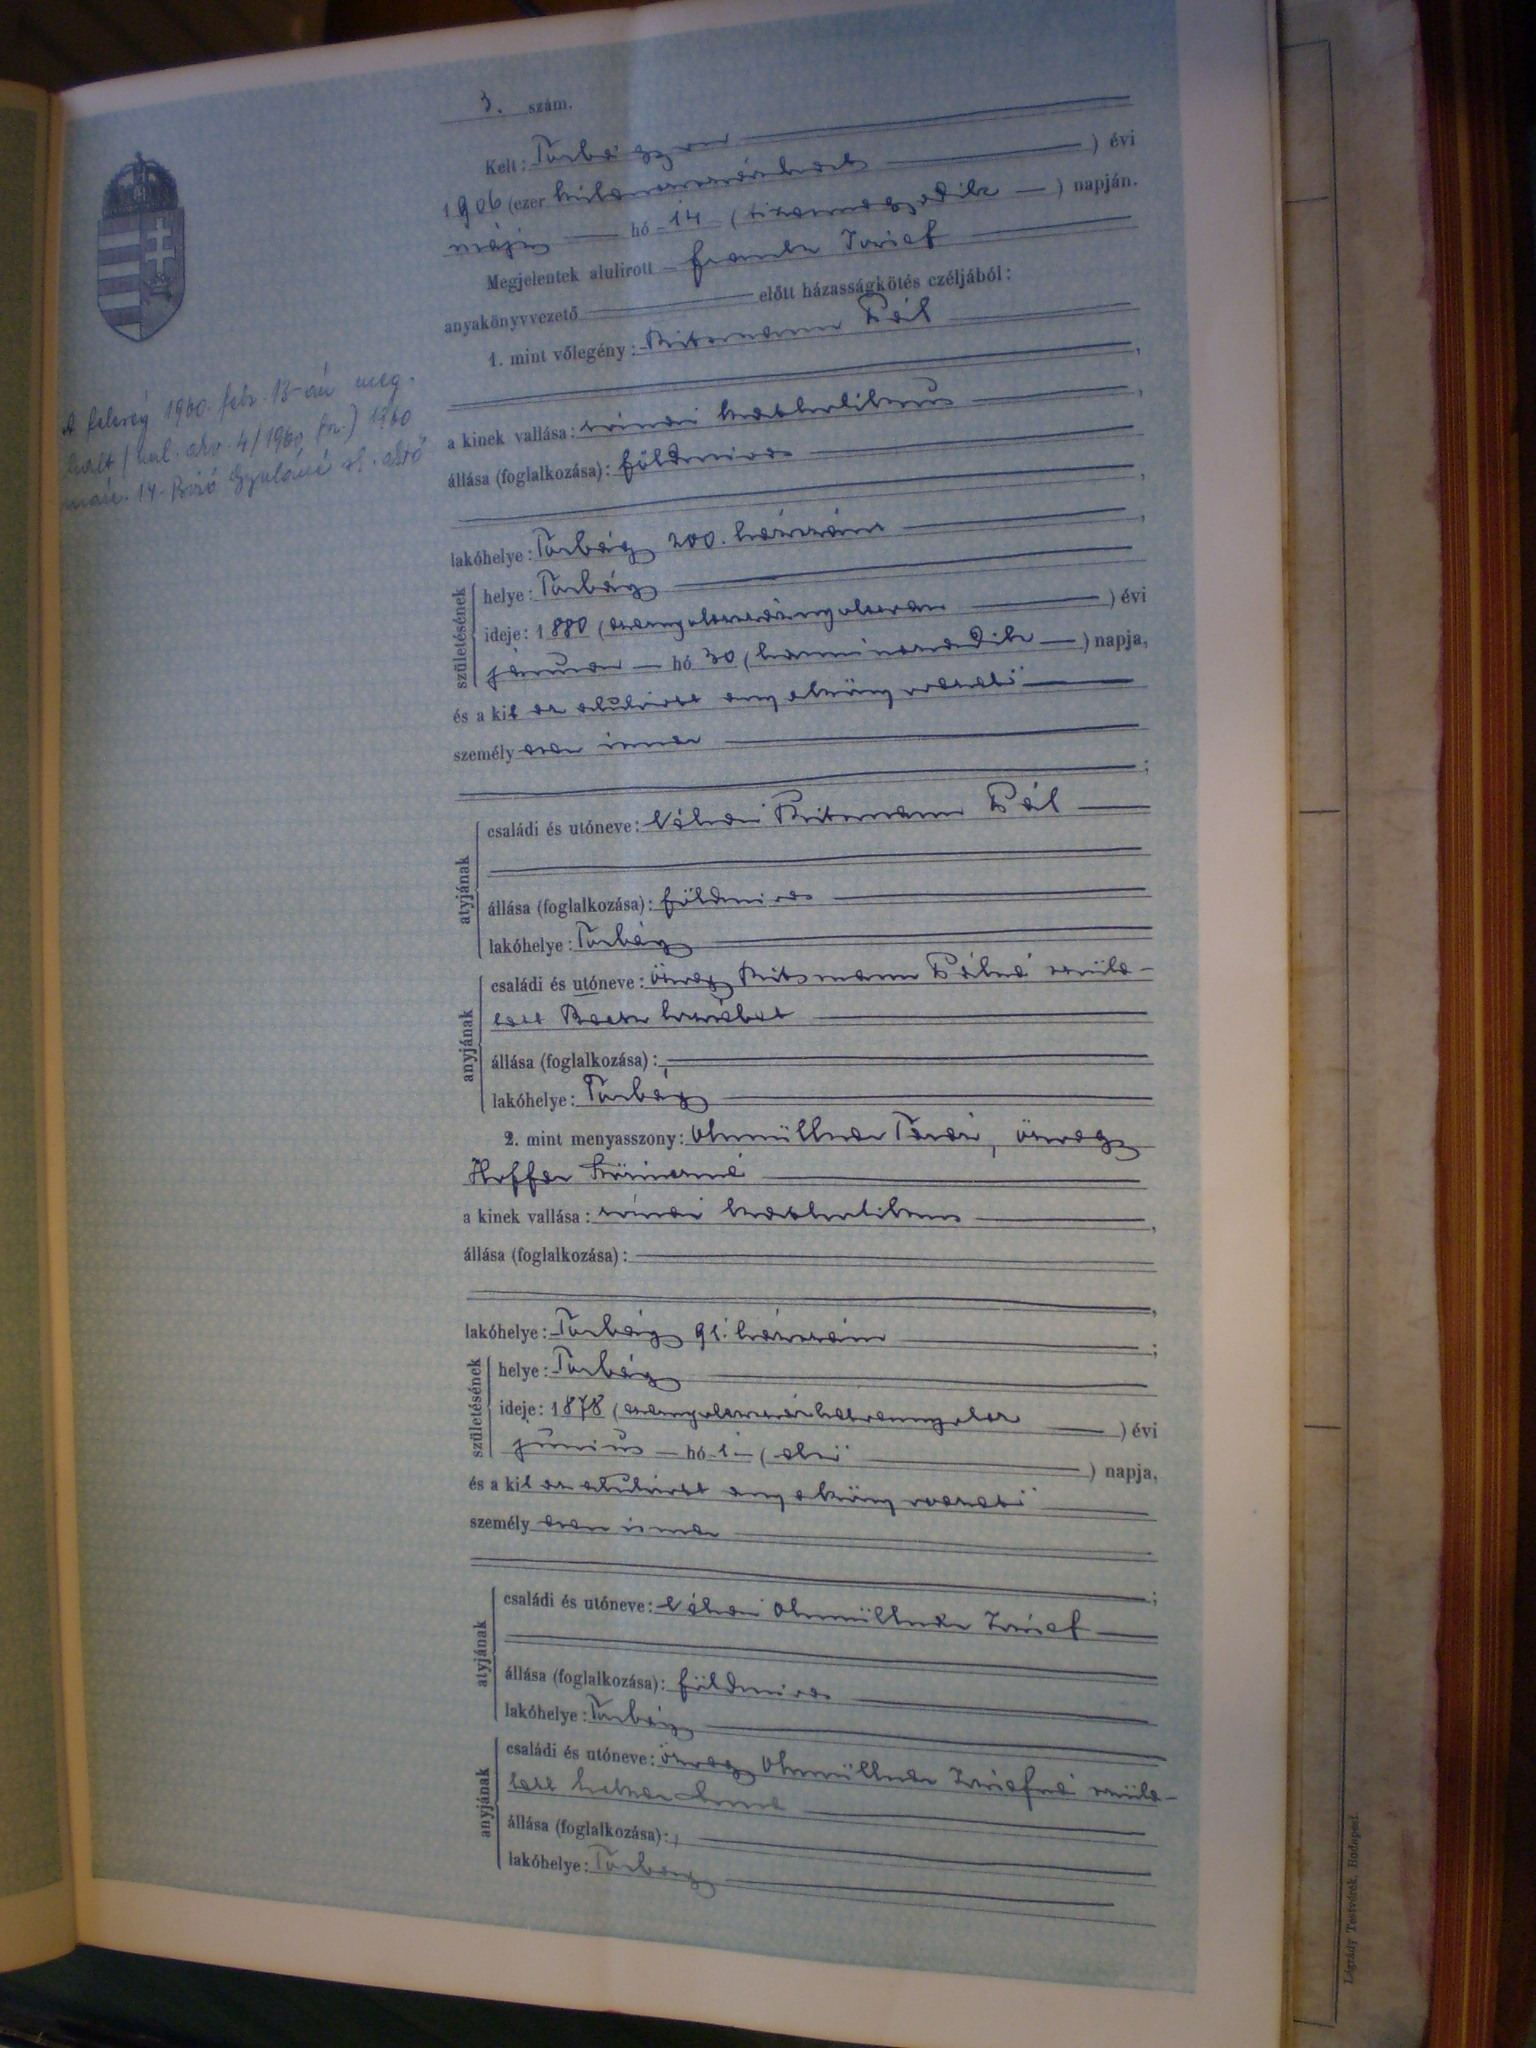 3. szám.
Kelt: Torbágyon
1906 (ezer kilencszázhatodik) évi
május hó 14 (tizennegyedik) napján.
Megjelentek alulirott Frank József
anyakönyvvezető előtt házasságkötés czéljából:
1. mint vőlegény: Ritsmann Pál
a kinek vallása: római katholikus
állása (foglalkozása): földmives
lakóhelye: Torbágy 200. házszám
születésének
helye: Torbágy
ideje: 1880 (ezernyolcszáznyolcvan) évi
január hó 30 (harmincadik) napja,
és a kit az alulirott anyakönyvvezető
személyesen ismer
;
atyjának
családi és utóneve: Néhai Ritsmann Pál
állása (foglalkozása): földmives
lakóhelye: Torbágy
anyjának
családi és utóneve: özvegy Ritsmann Pálné szüle-
tett Erzsébet
állása (foglalkozása):
lakóhelye: Torbágy
2. mint menyasszony: Ohmüllner Teréz, özvegy
Hoffer
a kinek vallása: római katholikus
állása (foglalkozása):
lakóhelye: Torbágy 91. házszám
születésének
helye: Torbágy
ideje: 1878 (ezernyolcszázhetvennyolc) évi
június hó 1 (első) napja,
és a kit az alulirott anyakönyvvezető
személyesen ismer
;
atyjának
családi és utóneve: Néhai Ohmüllner József
állása (foglalkozása): földmives
lakóhelye: Torbágy
anyjának
családi és utóneve: özvegy Ohmüllner Józsefné szüle-
tett
állása (foglalkozása):
lakóhelye: Torbágy
A feleség 1960. febr. 13-án meg-
halt (hal. akv. 4/1960 fsz.) 1960
márc. 14. Biró Gyuláné
Légrády Testvérek, Budapest.